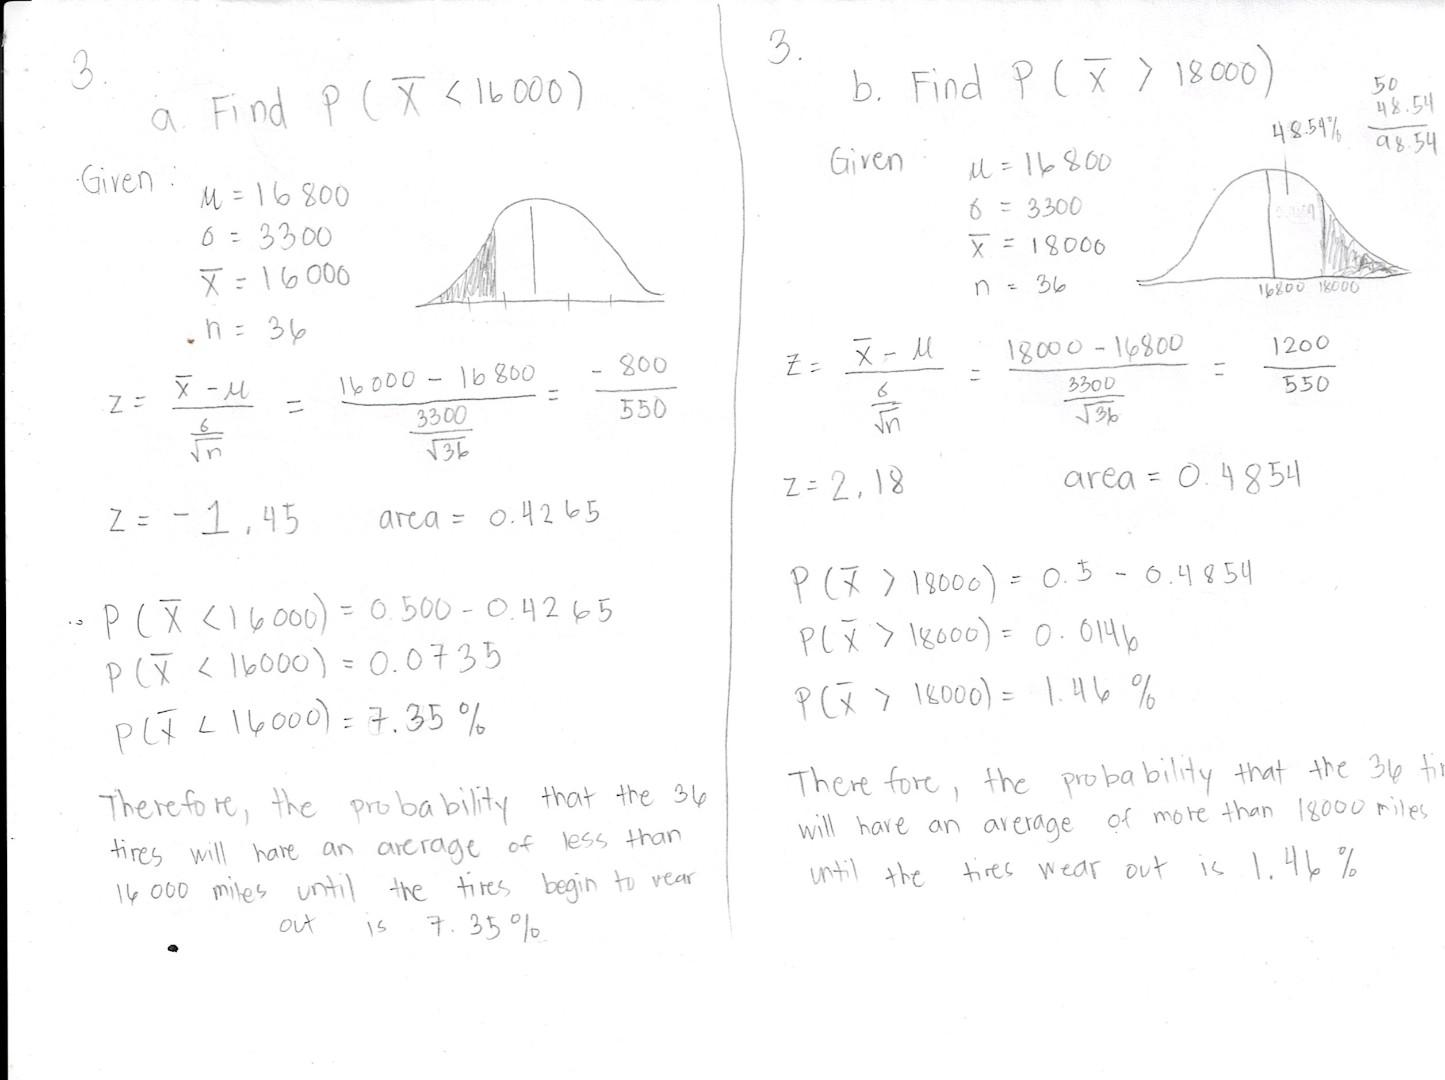 3.
a. Find P ( X̅ < 16000)
Given :
μ = 16800
σ = 3300
X̅ = 16000
n = 36
z = (x̅ - μ) / (σ/√n) = (16000 - 16800) / (3300/√36) = -800 / 550
z = -1.45 area = 0.4265
∴ P (X̅ < 16000) = 0.500 - 0.4265
P (X̅ < 16000) = 0.0735
P(X̅ < 16000) = 7.35 %
Therefore, the probability that the 36
tires will have an average of less than
16 000 miles until the tires begin to wear
out is 7.35%
3.
b. Find P ( X̅ > 18000)
50
48.54
98.54
48.54%
Given :
μ = 16800
σ = 3300
x̅ = 18000
n = 36
16800 18000
z = (x̅ - μ) / (σ/√n) = (18000 - 16800) / (3300/√36) = 1200 / 550
z = 2.18 area = 0.4854
P (X̅ > 18000) = 0.5 - 0.4854
P(X̅ > 18000) = 0.0146
P (X̅ > 18000) = 1.46 %
Therefore, the probability that the 36
will have an average of more than 18000 miles
until the tires wear out is 1.46 %